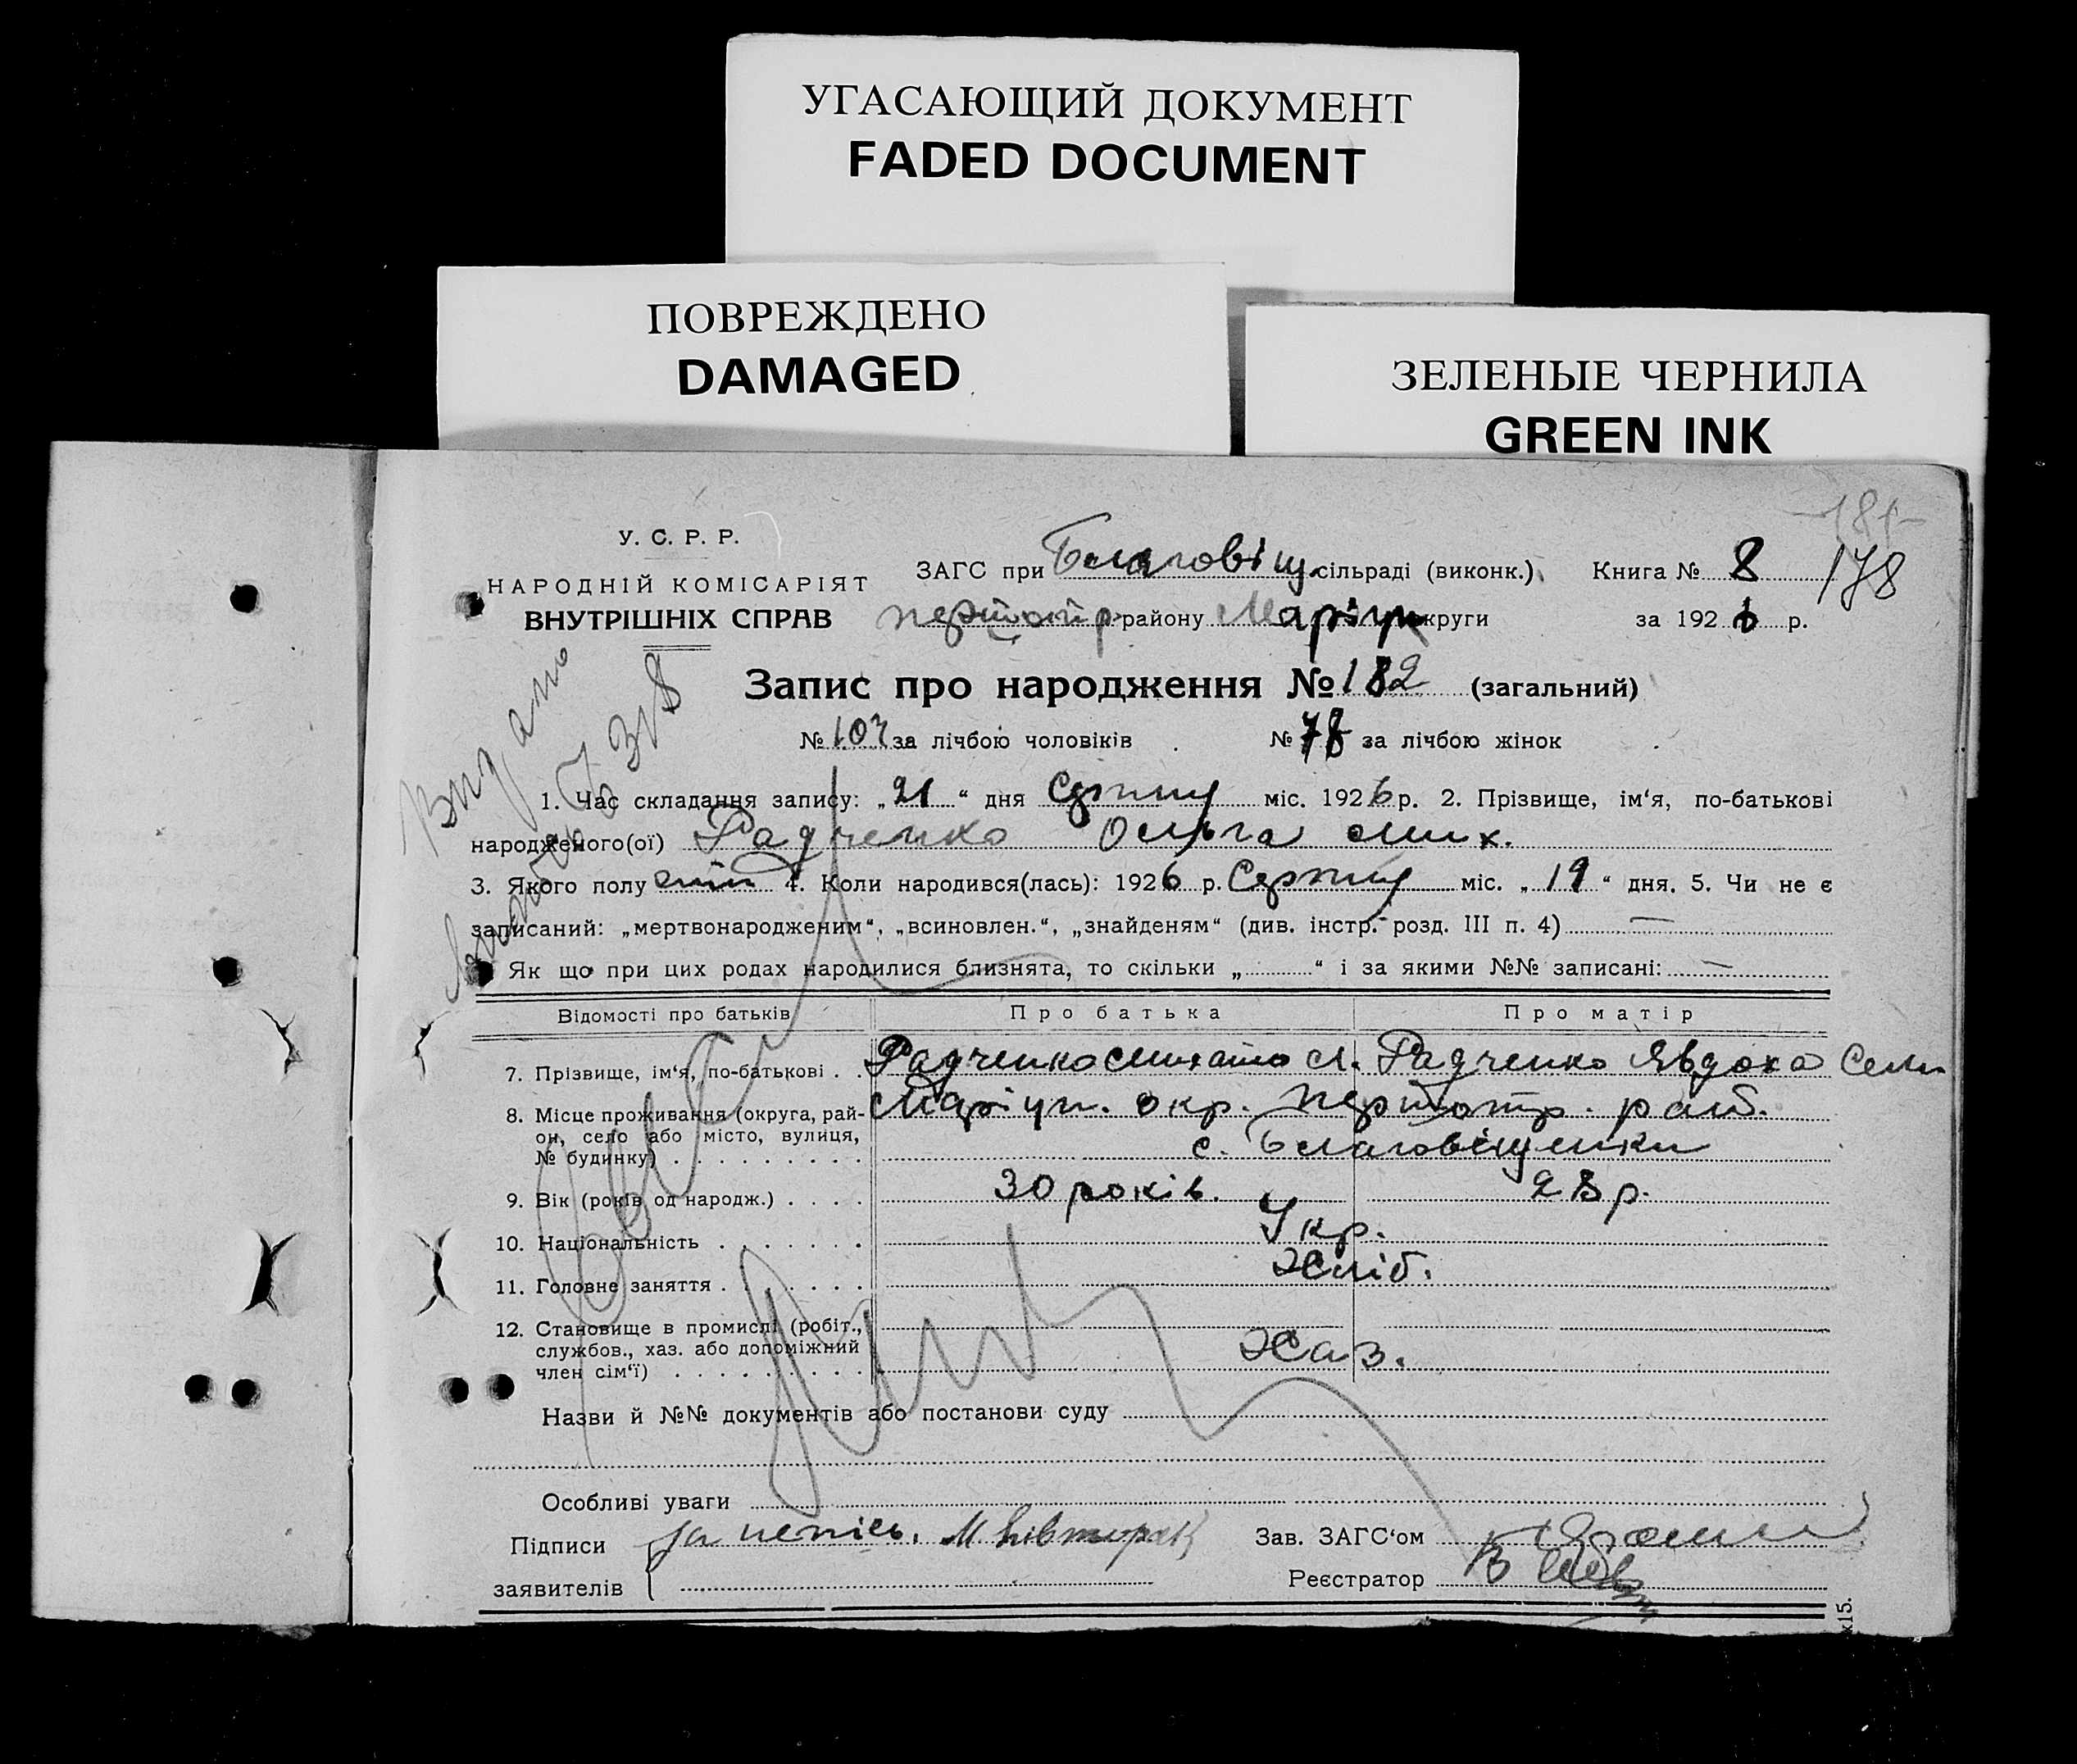 УГАСАЮЩИЙ ДОКУМЕНТ
FADED DOCUMENT
ПОВРЕЖДЕНО
DAMAGED
ЗЕЛЕНЫЕ ЧЕРНИЛА
GREEN INK
-181-
178
У. С. Р. Р.
НАРОДНІЙ КОМІСАРІЯТ
ВНУТРІШНІХ СПРАВ
ЗАГС при Благовіщ. сільраді (виконк.) Книга № 8
району Маріуп округи за 1926 р.
Запис про народження № 182 (загальний)
№ 103 за лічбою чоловіків № 78 за лічбою жінок
1. Час складання запису: „21“ дня Серпня міс. 1926 р. 2. Прізвище, ім‘я, по-батькові
народженого(ої) Радченко Ольга Мих.
3. Якого полу жін 4. Коли народився(лась): 1926 р. Серпня міс. „19“ дня. 5. Чи не є
записаний: „мертвонародженим“, „всиновлен.“, „знайденям“ (див. інстр. розд. III п. 4) —
Як що при цих родах народилися близнята, то скільки „ “ і за якими №№ записані: —
Відомості про батьків Про батька Про матір
7. Прізвище, ім‘я, по-батькові . . Радченко Михайло М. Радченко Явдоха Сем
8. Місце проживання (округа, рай-
он, село або місто, вулиця,
№ будинку) . . . . . . . . . Маріуп. окр. рай.
с. Благовіщенки
9. Вік (років од народж.) . . . . 30 років. 28 р.
10. Національність . . . . . . . Укр.
11. Головне заняття . . . . . . . Хліб.
12. Становище в промислі (робіт.,
службов., хаз. або допоміжний
член сім‘ї) . . . . . . . . . Хаз.
Назви й №№ документів або постанови суду
Особливі уваги
Підписи за непись. М Півторак Зав. ЗАГС‘ом
заявителів Реєстратор
Видано
х15.